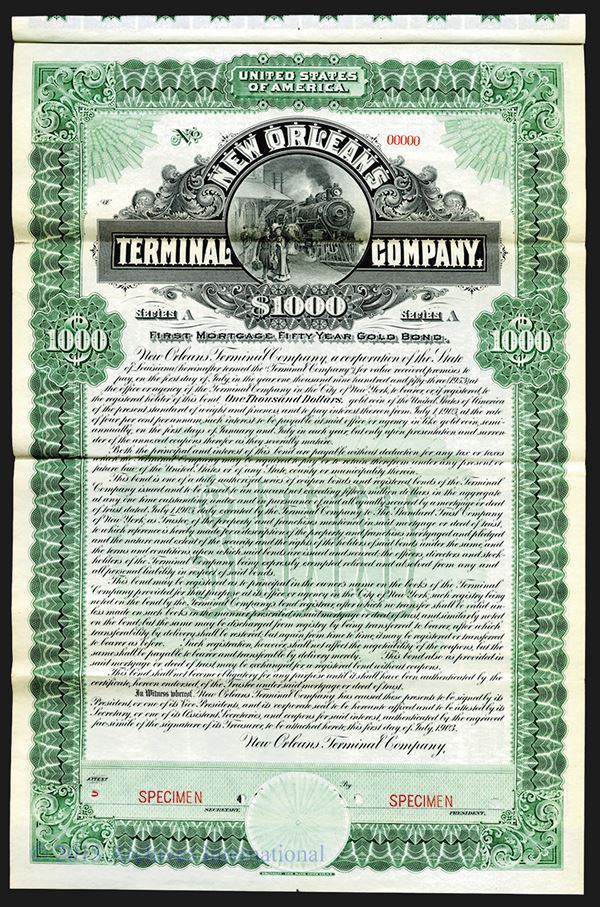 UNITED STATES
OF AMERICA.
No
00000
NEW ORLEANS
TERMINAL COMPANY.
$1000
SERIES A SERIES A
1000 1000
FIRST MORTGAGE FIFTY YEAR GOLD BOND.
New Orleans Terminal Company, a corporation of the State
of Louisiana (hereinafter termed the Terminal Company) for value received promises to
pay, on the first day of July, in the year one thousand nine hundred and fifty-three (1953) at
the office or agency of the Terminal Company in the City of New York, to bearer, or if registered, to
the registered holder of this bond, One Thousand Dollars, gold coin of the United States of America
of the present standard of weight and fineness, and to pay interest thereon from July 1, 1903, at the rate
of four per cent per annum, such interest to be payable at said office or agency in like gold coin, semi-
annually, on the first days of January and July in each year, but only upon presentation and surren-
der of the annexed coupons therefor as they severally mature.
Both the principal and interest of this bond are payable without deduction for any tax or taxes
which the Terminal Company may be required to pay or to retain therefrom under any present or
future law of the United States or of any State, county or municipality therein.
This bond is one of a duly authorized series of coupon bonds and registered bonds of the Terminal
Company issued and to be issued to an amount not exceeding fifteen million dollars in the aggregate
at any one time outstanding, under and in pursuance of, and all equally secured by, a mortgage or deed
of trust dated July 1, 1903, duly executed by the Terminal Company to The Standard Trust Company
of New York, as Trustee, of the property and franchises mentioned in said mortgage or deed of trust,
to which reference is hereby made for a description of the property and franchises mortgaged and pledged
and the nature and extent of the security and the rights of the holders of said bonds under the same, and
the terms and conditions upon which said bonds are issued and secured; the officers, directors and stock-
holders of the Terminal Company being expressly exempted, relieved and absolved from any and
all personal liability in respect of said bonds.
This bond may be registered as to principal in the owner's name on the books of the Terminal
Company provided for that purpose at its office or agency in the City of New York, such registry being
noted on the bond by the Terminal Company's bond registrar, after which no transfer shall be valid un-
less made on such books by the registered holder as in said mortgage or deed of trust, and similarly noted
on the bond; but the same may be discharged from registry by being transferred to bearer, after which
transferability by delivery shall be restored, but again from time to time, it may be registered or transferred
to bearer as before. Such registration, however, shall not affect the negotiability of the coupons, but the
same shall be payable to bearer and transferable by delivery merely. This bond also, as provided in
said mortgage or deed of trust may be exchanged for a registered bond without coupons.
This bond shall not become obligatory for any purpose until it shall have been authenticated by the
certificate, hereon endorsed, of the Trustee under said mortgage or deed of trust.
In Witness whereof, New Orleans Terminal Company has caused these presents to be signed by its
President, or one of its Vice-Presidents, and its corporate seal to be hereunto affixed and to be attested by its
Secretary, or one of its Assistant Secretaries, and coupons for said interest, authenticated by the engraved
facsimile of the signature of its Treasurer, to be attached hereto, this first day of July, 1903.
New Orleans Terminal Company,
ATTEST By
SPECIMEN SPECIMEN
SECRETARY. PRESIDENT.
International